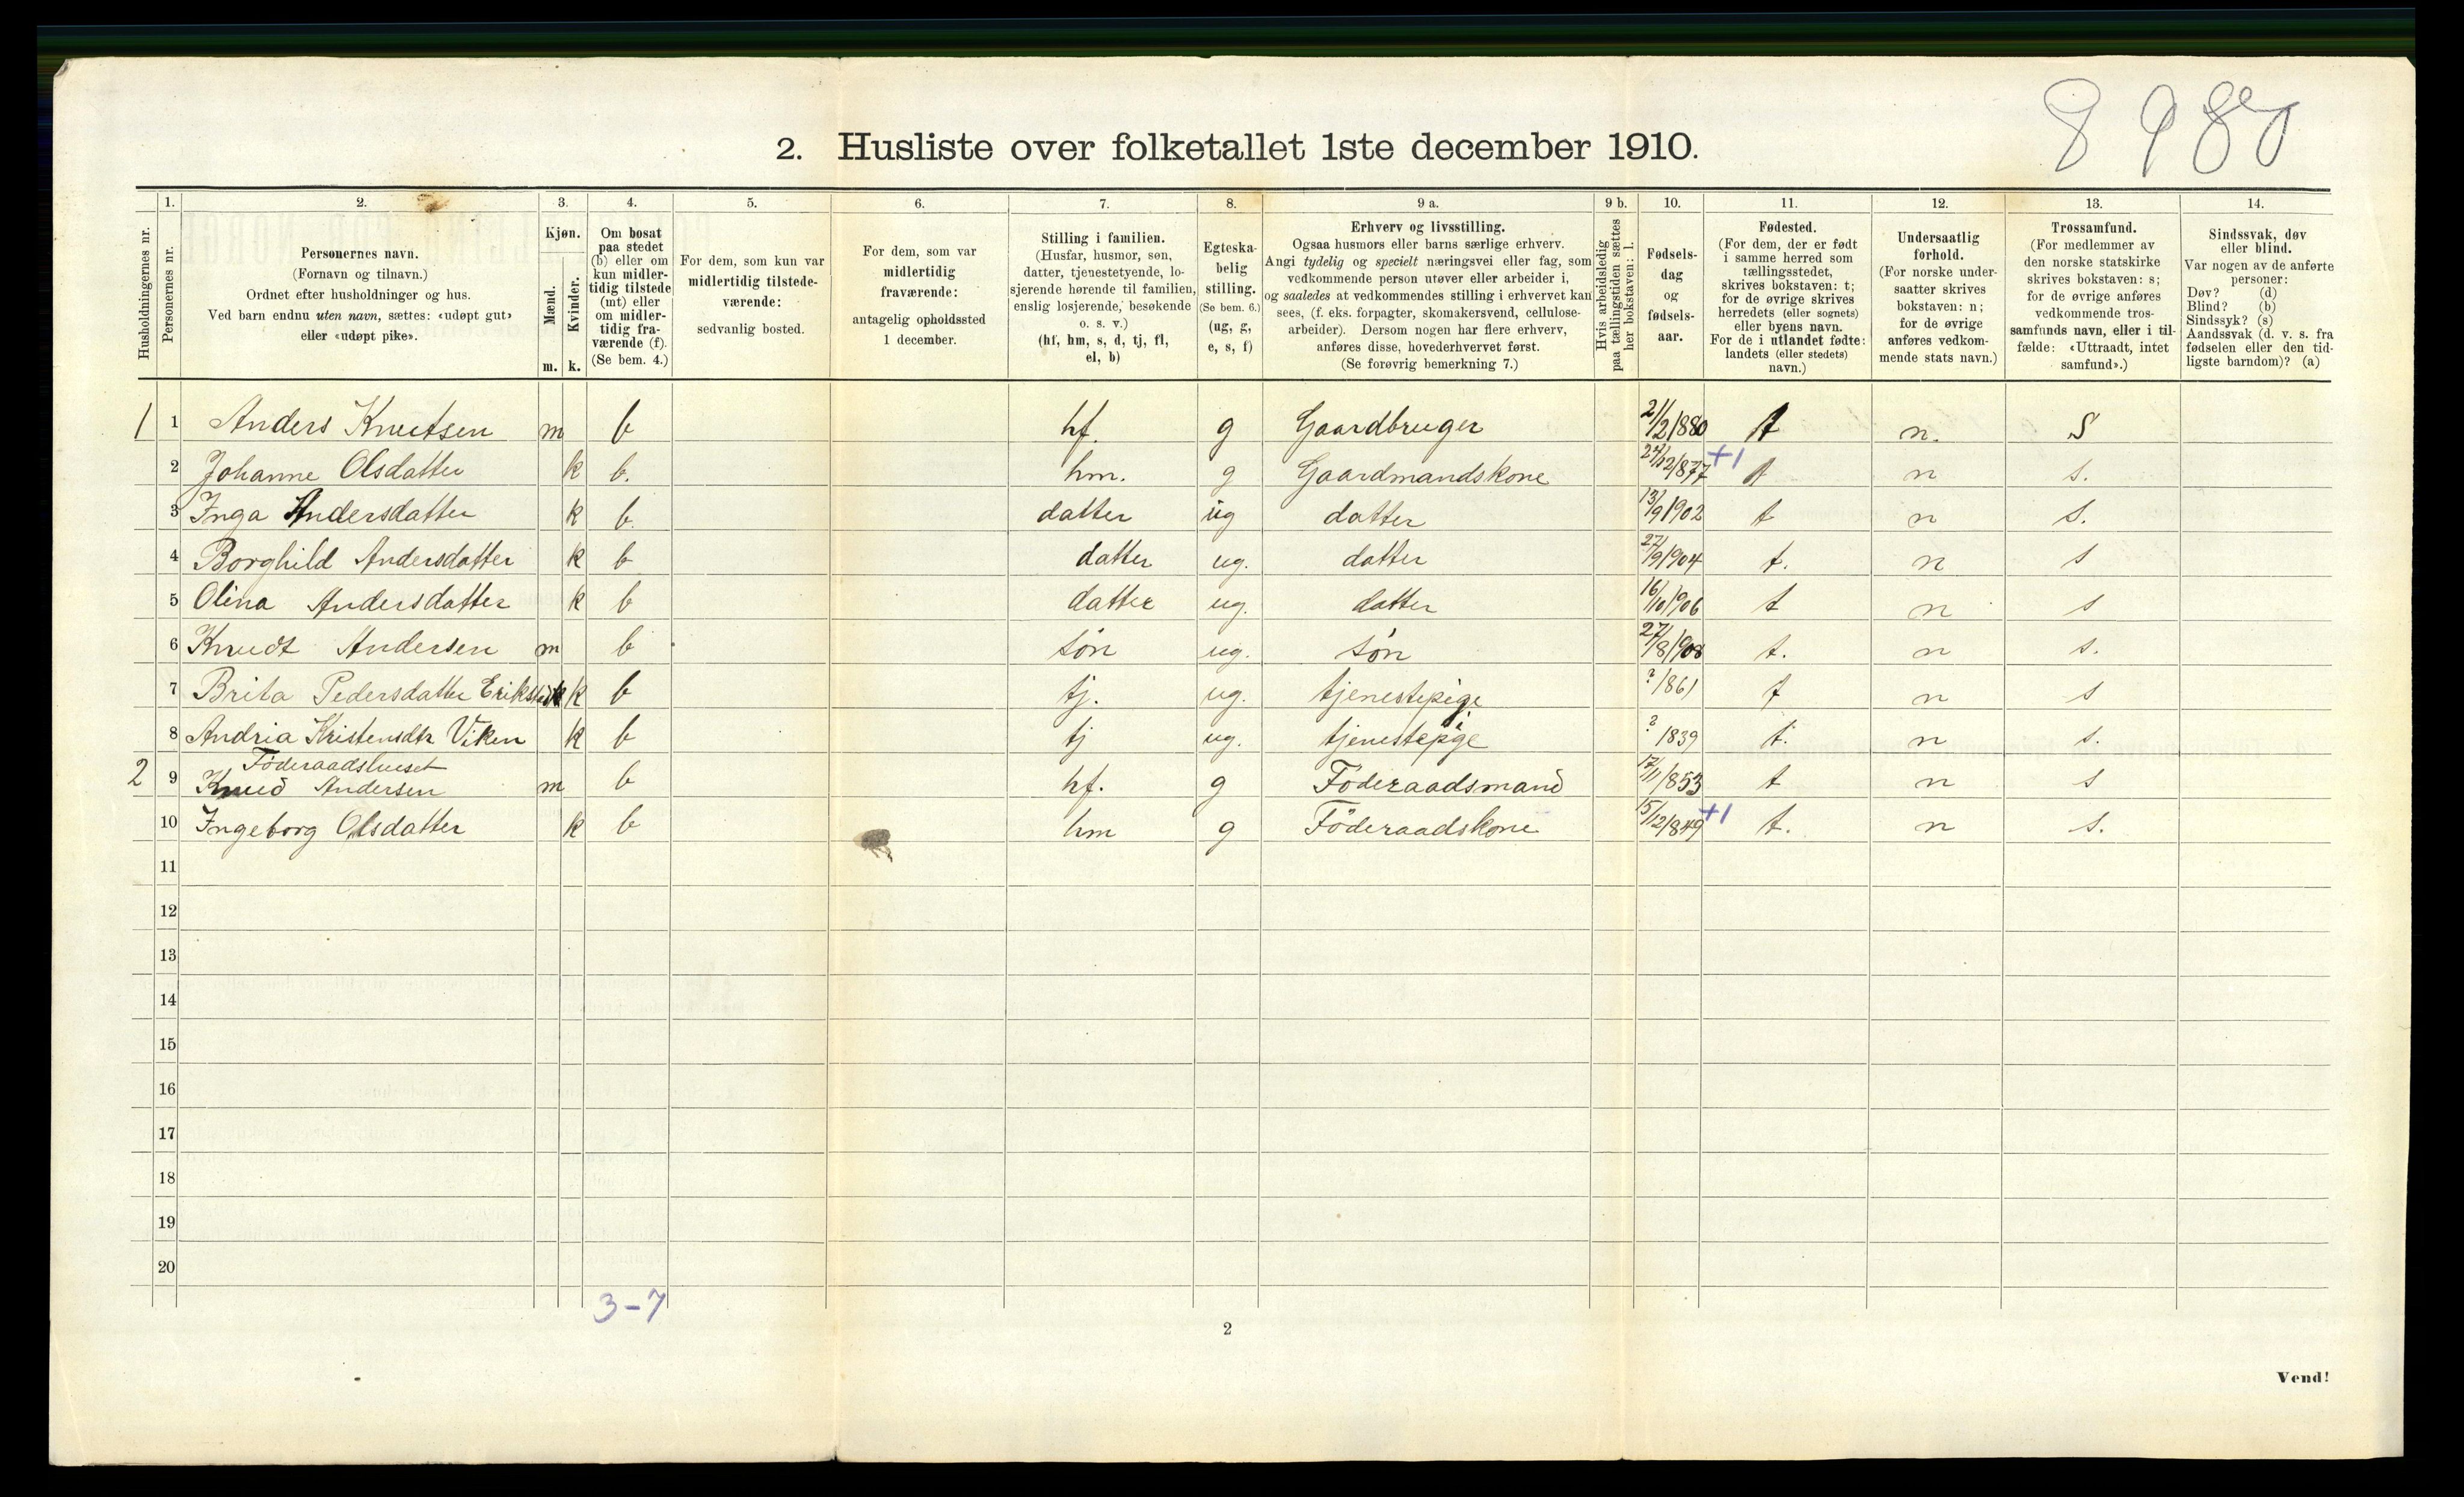 8 9 80
2. Husliste over folketallet 1ste december 1910.
Husholdningernes nr.
1.
Personernes nr.
2.
Personernes navn.
(Fornavn og tilnavn.)
Ordnet efter husholdninger og hus.
Ved barn endnu uten navn, sættes: «udøpt gut»
eller «udøpt pike».
3.
Kjøn.
Mænd.
Kvinder.
m. k.
4.
Om bosat
paa stedet
(b) eller om
kun midler-
tidig tilstede
(mt) eller
om midler-
tidig fra-
værende (f).
(Se bem. 4.)
5.
For dem, som kun var
midlertidig tilstede-
værende:
sedvanlig bosted.
6.
For dem, som var
midlertidig
fraværende:
antagelig opholdssted
1 december.
7.
Stilling i familien.
(Husfar, husmor, søn,
datter, tjenestetyende, lo-
sjerende hørende til familien,
enslig losjerende, besøkende
o. s. v.)
(hf, hm, s, d, tj, fl,
el, b)
8.
Egteska-
belig
stilling.
(Se bem. 6.)
(ug, g,
e, s, f)
9 a.
Erhverv og livsstilling.
Ogsaa husmors eller barns særlige erhverv.
Angi tydelig og specielt næringsvei eller fag, som
vedkommende person utøver eller arbeider i,
og saaledes at vedkommendes stilling i erhvervet kan
sees, (f. eks. forpagter, skomakersvend, cellulose-
arbeider). Dersom nogen har flere erhverv,
anføres disse, hovederhvervet først.
(Se forøvrig bemerkning 7.)
9 b.
Hvis arbeidsledig
paa tællingstiden sættes
her bokstaven: l.
10.
Fødsels-
dag
og
fødsels-
aar.
11.
Fødested.
(For dem, der er født
i samme herred som
tællingsstedet,
skrives bokstaven: t;
for de øvrige skrives
herredets (eller sognets)
eller byens navn.
For de i utlandet fødte:
landets (eller stedets)
navn.)
12.
Undersaatlig
forhold.
(For norske under-
saatter skrives
bokstaven: n;
for de øvrige
anføres vedkom-
mende stats navn.)
13.
Trossamfund.
(For medlemmer av
den norske statskirke
skrives bokstaven: s;
for de øvrige anføres
vedkommende tros-
samfunds navn, eller i til-
fælde: «Uttraadt, intet
samfund».)
14.
Sindssvak, døv
eller blind.
Var nogen av de anførte
personer:
Døv? (d)
Blind? (b)
Sindssyk? (s)
Aandssvak (d. v. s. fra
fødselen eller den tid-
ligste barndom)? (a)
1 1 Anders Knutsen m b hf. g Gaardbruger 21/2 1880 t n. S
2 Johanne Olsdatter k b. hm. g Gaardmandskone 24/12 1877 +1 t n s.
3 Inga Andersdatter k b. datter ug datter 13/9 1902 t n s.
4 Borghild Andersdatter k b datter ug. datter 27/9 1904 t. n s
5 Olina Andersdatter k b datter ug. datter 16/10 1906 t n s
6 Knudt Andersen m b søn ug. søn 27/8 1908 t. n s.
7 Brita Pedersdatter k b tj. ug. tjenestepige ? 1861 t n s
8 Andria Kristensdtr Viken k b tj ug. tjenestepige ? 1839 t. n s.
Föderaadshuset
2 9 Knud Andersen m b hf. g Föderaadsmand 17/11 1853 t n s
10 Ingeborg Olsdatter k b hm g Föderaadskone 15/12 1849 +1 t. n s.
11
12
13
14
15
16
17
18
19
20
3-7
2
Vend!